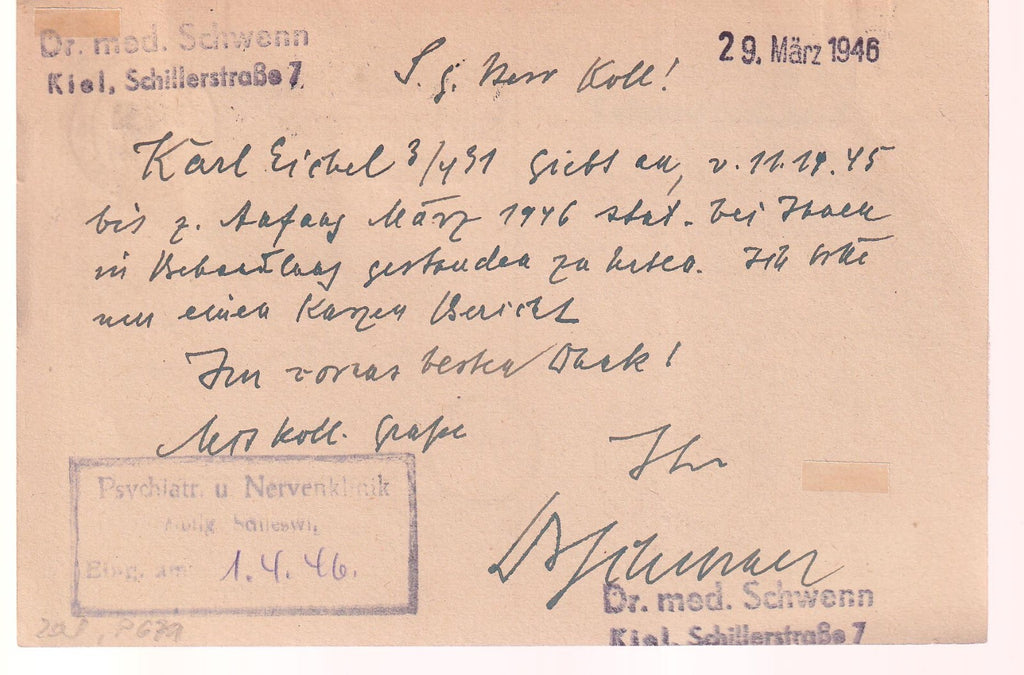 Dr. med. Schwenn
Kiel, Schillerstraße 7
29. März 1946
S. g. Herr Koll!
Karl Eichel 3/431 giebt an, v. 11.12.45
bis z. Anfang März 1946 stat. bei Ihnen
in Behandlung gestanden zu haben. Ich bitte
um einen kurzen Bericht
Im voraus besten Dank!
Mit koll. Gruße
Ihr
Dr Schwenn
Psychiatr. u Nervenklinik
Schleswi
Eing. am: 1.4.46.
Dr. med. Schwenn
Kiel, Schillerstraße 7